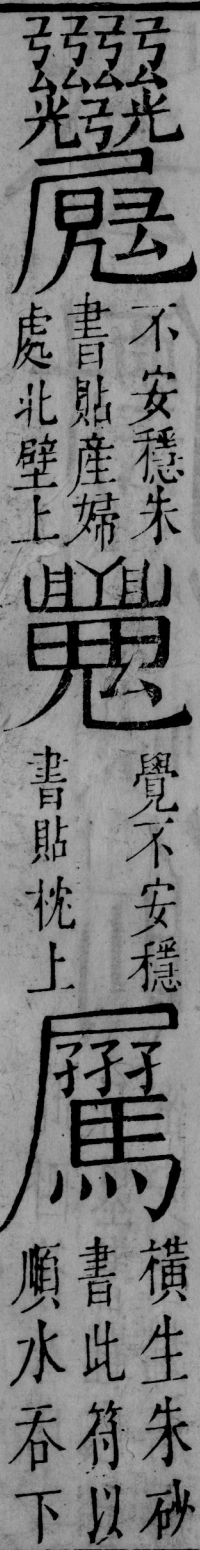 不安穩朱
書貼産婦
處北壁上
覺不安穩
書貼枕上
橫生朱砂
書此符以
順水吞下